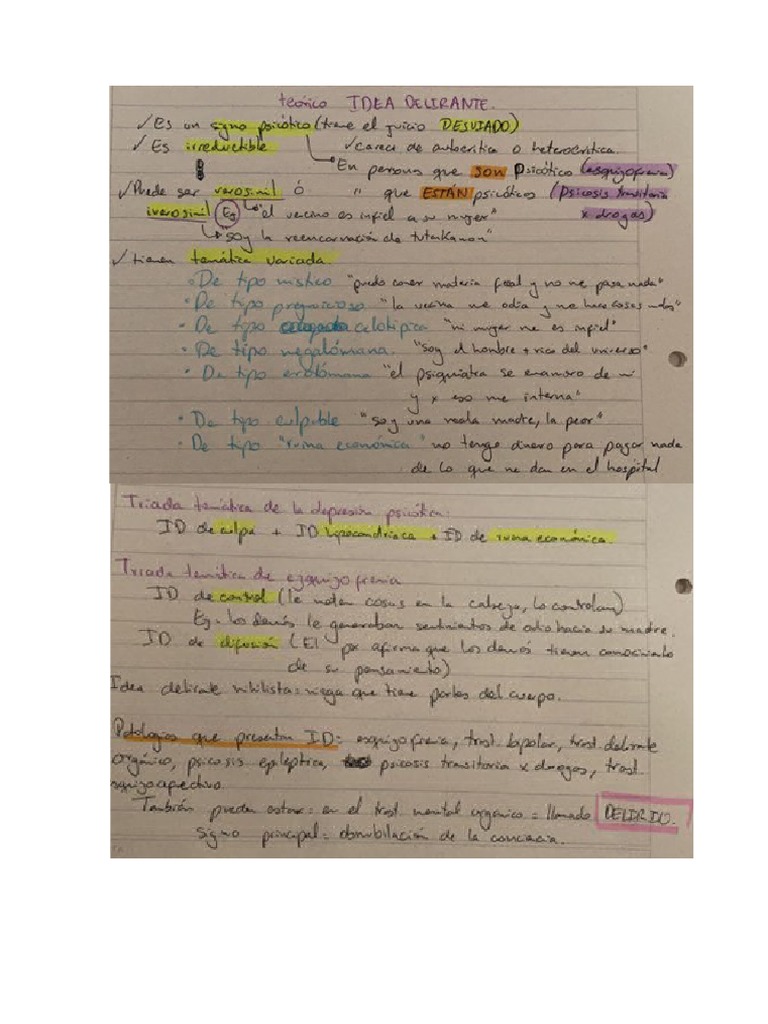 teórico IDEA DELIRANTE.
✓ Es un signo psicótico (tiene el juicio DESVIADO)
✓ Es irreductible ✓ carece de autocrítica o heterocrítica.
En persona que SON Psicótico (esquizofrenia)
✓ Puede ser verosimil ó " que ESTÁN psicóticos (psicosis transitoria
iverosimil (Eg) "el vecino es infiel a su mujer" x drogas)
"soy la reencarnación de tutankamon"
✓ tienen temática variada
• De tipo mistico "puedo comer materia fecal y no me pasa nada"
• De tipo prejuicioso "la vecina me odia y me hace cosas malas"
• De tipo celotípica "mi mujer me es infiel"
• De tipo megalómana. "soy el hombre + rico del universo"
• De tipo erotómana "el psiquiatra se enamoro de mi
y x eso me interna"
• De tipo culpable "soy una mala madre, la peor"
• De tipo "ruina económica" no tengo dinero para pagar nada
de lo que me dan en el hospital
Triada temática de la depresión psicótica:
ID de culpa + ID hipocondríaca + ID de ruina económica
Triada temática de ezquizofrenia
ID de control (le meten cosas en la cabeza, lo controlan)
Eg. los demás le generaban sentimientos de odio hacia su madre.
ID de difusión (El px afirma que los demás tienen conocimiento
de su pensamiento)
Idea delirate nihilista: niega que tiene partes del cuerpo.
Patologías que presentan ID: esquizofrenia, trast. bipolar, trast. delirate
orgánico, psicosis epileptica, psicosis transitoria x drogas, trast.
squizoafectivo.
También pueden estar: en el trast. mental orgánico = llamado DELIRIO.
Signo principal = obnubilación de la conciencia.